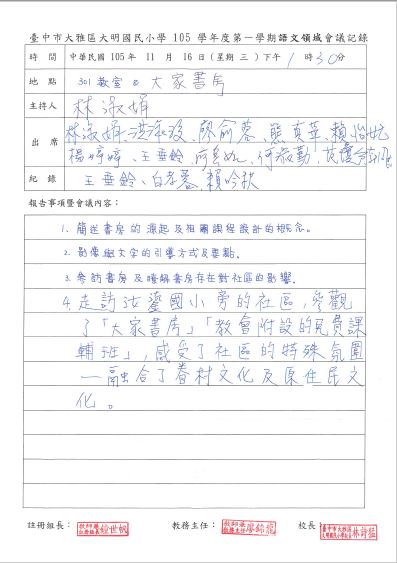 臺中市大雅區大明國民小學 105 學年度第一學期語文領域會議記錄
時間 中華民國 105 年 11 月 16 日(星期 三)下午 1 時 30 分
地點 301 教室 & 大家書房
主持人 林淑娟
出席 林淑娟、洪、廖俞蓉、熊真華、賴怡
楊婷婷、王垂鈴、何淑勤、
紀錄 王垂鈴、白孝蓉、賴吟秋
報告事項暨會議內容：
1. 簡述書房的源起及相關課程設計的概念。
2. 影像與文字的引導方式及要點。
3. 參訪書房及瞭解書房存在對社區的影響。
4. 走訪汝鎏國小旁的社區，參觀
了「大家書房」「教會附設的免費課
輔班」，感受了社區的特殊氛圍
—融合了眷村文化及原住民文
化。
註冊組長： 教師兼註冊組長 世帆 教務主任： 教師兼教務主任 廖錦龍 校長： 臺中市大雅區大明國民小學校長 林許猛